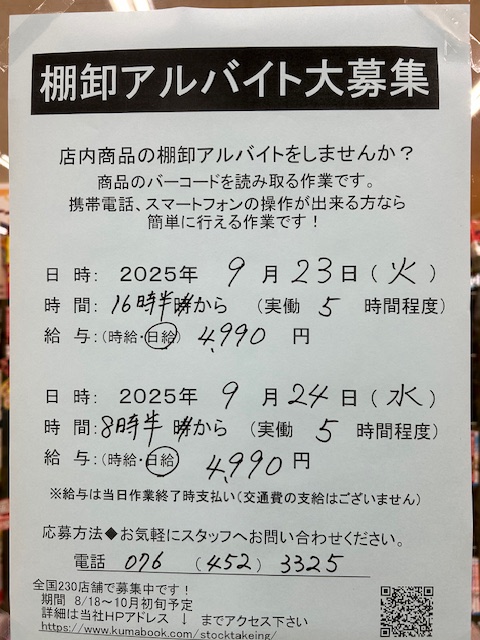 棚卸アルバイト大募集
店内商品の棚卸アルバイトをしませんか？
商品のバーコードを読み取る作業です。
携帯電話、スマートフォンの操作が出来る方なら
簡単に行える作業です！
日 時： 2025年 9 月 23 日（ 火 ）
時 間： 16時半 時から （実働 5 時間程度）
給 与：（時給・日給） 4,990 円
日 時： 2025年 9 月 24 日（ 水 ）
時 間： 8時半 時から （実働 5 時間程度）
給 与：（時給・日給） 4,990 円
※給与は当日作業終了時支払い（交通費の支給はございません）
応募方法◆お気軽にスタッフへお問い合わせください。
電話 076 （452）3325
全国230店舗で募集中です！
期間 8/18～10月初旬予定
詳細は当社HPアドレス ↓ までアクセス下さい
https://www.kumabook.com/stocktakeing/